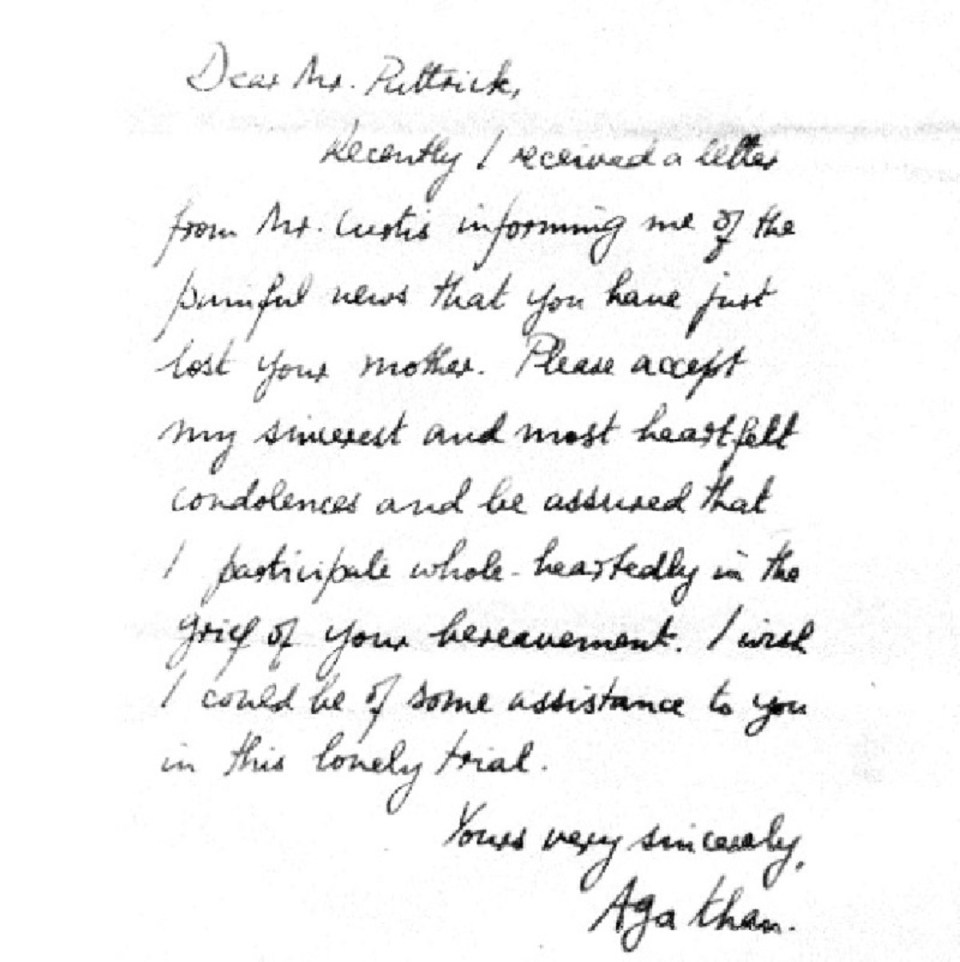 Dear Mr. Puttrick,
Recently I received a letter
from Mr. Curtis informing me of the
painful news that you have just
lost your mother. Please accept
my sincerest and most heartfelt
condolences and be assured that
I participate whole-heartedly in the
grief of your bereavement. I wish
I could be of some assistance to you
in this lonely trial.
Yours very sincerely,
Aga Khan.